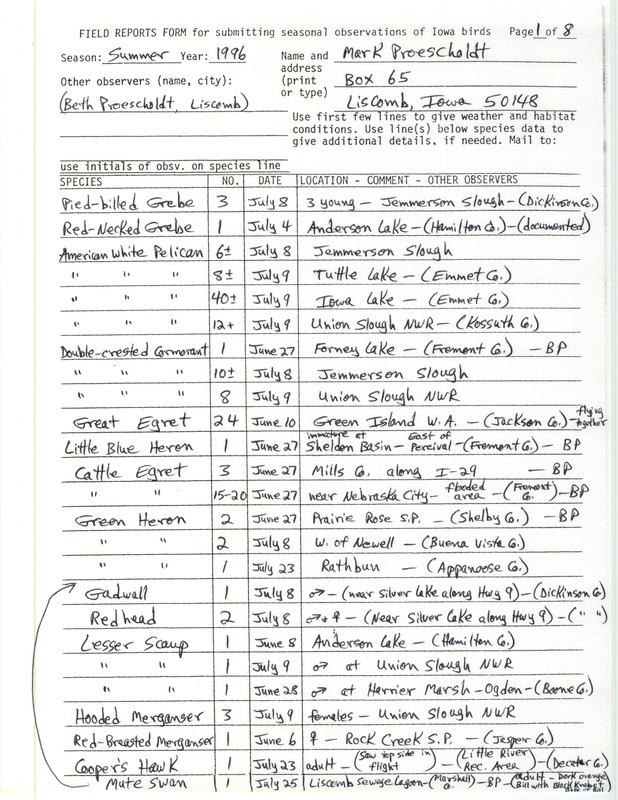 FIELD REPORTS FORM for submitting seasonal observations of Iowa birds Page 1 of 8
Season: Summer Year: 1996
Name and address (print or type) Mark Proescholdt
Box 65
Liscomb, Iowa 50148
Other observers (name, city):
(Beth Proescholdt, Liscomb)
Use first few lines to give weather and habitat
conditions. Use line(s) below species data to
give additional details, if needed. Mail to:
use initials of obsv. on species line
SPECIES NO. DATE LOCATION - COMMENT - OTHER OBSERVERS
Pied-billed Grebe 3 July 8 3 young - Jemmerson Slough - (Dickinson Co.)
Red-Necked Grebe 1 July 4 Anderson Lake - (Hamilton Co.) - (documented)
American White Pelican 6± July 8 Jemmerson Slough
" " " 8± July 9 Tuttle Lake - (Emmet Co.)
" " " 40± July 9 Iowa Lake - (Emmet Co.)
" " " 12+ July 9 Union Slough NWR - (Kossuth Co.)
Double-crested Cormorant 1 June 27 Forney Lake - (Fremont Co.) - BP
" " " 10± July 8 Jemmerson Slough
" " " 8 July 9 Union Slough NWR
Great Egret 24 June 10 Green Island W.A. - (Jackson Co.) - flying together
Little Blue Heron 1 June 27 immature at Sheldon Basin - East of Percival - (Fremont Co.) - BP
Cattle Egret 3 June 27 Mills Co. along I-29 - BP
" " 15-20 June 27 near Nebraska City - flooded area - (Fremont Co.) - BP
Green Heron 2 June 27 Prairie Rose S.P. - (Shelby Co.) - BP
" " 2 July 8 W. of Newell - (Buena Vista Co.)
" " 1 July 23 Rathbun - (Appanoose Co.)
Gadwall 1 July 8 ♂ - (near Silver Lake along Hwy 9) - (Dickinson Co.)
Redhead 2 July 8 ♂+♀ - (Near Silver Lake along Hwy 9) - (" ")
Lesser Scaup 1 June 8 Anderson Lake - (Hamilton Co.)
" " 1 July 9 ♂ at Union Slough NWR
" " 1 June 28 ♂ at Harrier Marsh - Ogden - (Boone Co.)
Hooded Merganser 3 July 9 females - Union Slough NWR
Red-Breasted Merganser 1 June 6 ♀ - Rock Creek S.P. - (Jasper Co.)
Cooper's Hawk 1 July 23 adult - (Saw topside in flight) - (Little River Rec. Area) - (Decatur Co.)
Mute Swan 1 July 25 Liscomb Sewage Lagoon - (Marshall Co.) - BP - (adult - Dark orange Bill with Black Knob